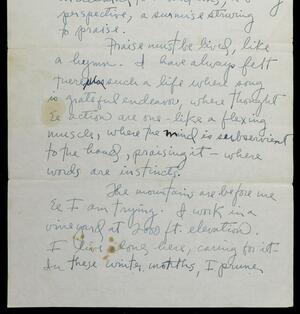 perspective, a surmise strung
to praise.
Praise must be lived, like
a hymn. I have always felt
there was such a life where song
is grateful endeavor, where thought
& action are one - like a flexing
muscle, where the mind is subservient
to the hand, praising it - where
words are instincts.
The mountains are before me
& I am trying. I work in a
vineyard at 2000 ft. elevation.
I live alone here, caring for it -
In these winter months, I prune